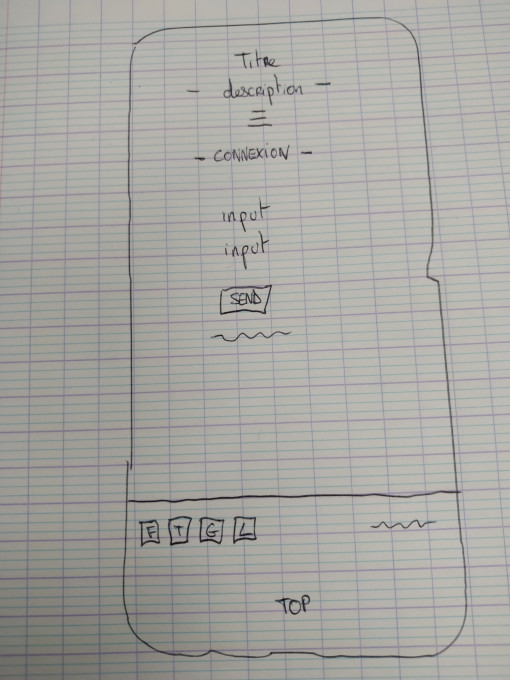 Titre
- description -
- CONNEXION -
input
input
SEND
F T G L
TOP